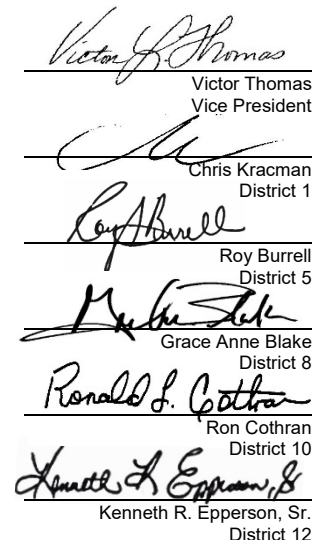 Victor L. Thomas
Victor Thomas
Vice President
Chris Kracman
District 1
Roy A Burrell
Roy Burrell
District 5
Grace Anne Blake
District 8
Ronald L. Cothran
Ron Cothran
District 10
Kenneth R Epperson, Sr
Kenneth R. Epperson, Sr.
District 12